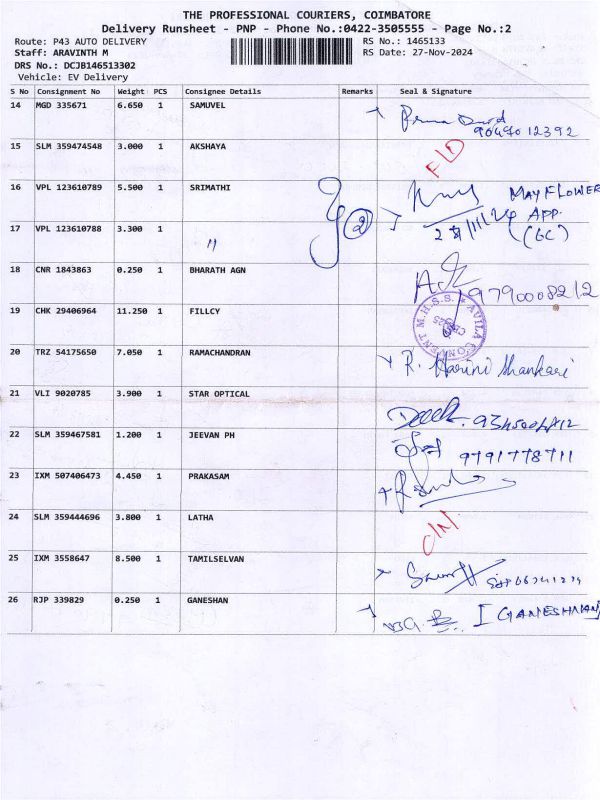 THE PROFESSIONAL COURIERS, COIMBATORE
Delivery Runsheet - PNP - Phone No.:0422-3505555 - Page No.:2
Route: P43 AUTO DELIVERY RS No.: 1465133
Staff: ARAVINTH M RS Date: 27-Nov-2024
DRS No.: DCJB146513302
Vehicle: EV Delivery
S No Consignment No Weight PCS Consignee Details Remarks Seal & Signature
14 MGD 335671 6.650 1 SAMUVEL
9049012392
15 SLM 359474548 3.000 1 AKSHAYA
16 VPL 123610789 5.500 1 SRIMATHI 2 MAYFLOWER
APP.
(6C)
17 VPL 123610788 3.300 1 "
18 CNR 1843863 0.250 1 BHARATH AGN
9790008212
19 CHK 29406964 11.250 1 FILLCY AVILA CONVENT M.H.S.S.
20 TRZ 54175650 7.050 1 RAMACHANDRAN R. Harini Shankari
21 VLI 9020785 3.900 1 STAR OPTICAL
22 SLM 359467581 1.200 1 JEEVAN PH 9791778711
23 IXM 507406473 4.450 1 PRAKASAM
24 SLM 359444696 3.800 1 LATHA
25 IXM 3558647 8.500 1 TAMILSELVAN
26 RJP 339829 0.250 1 GANESHAN